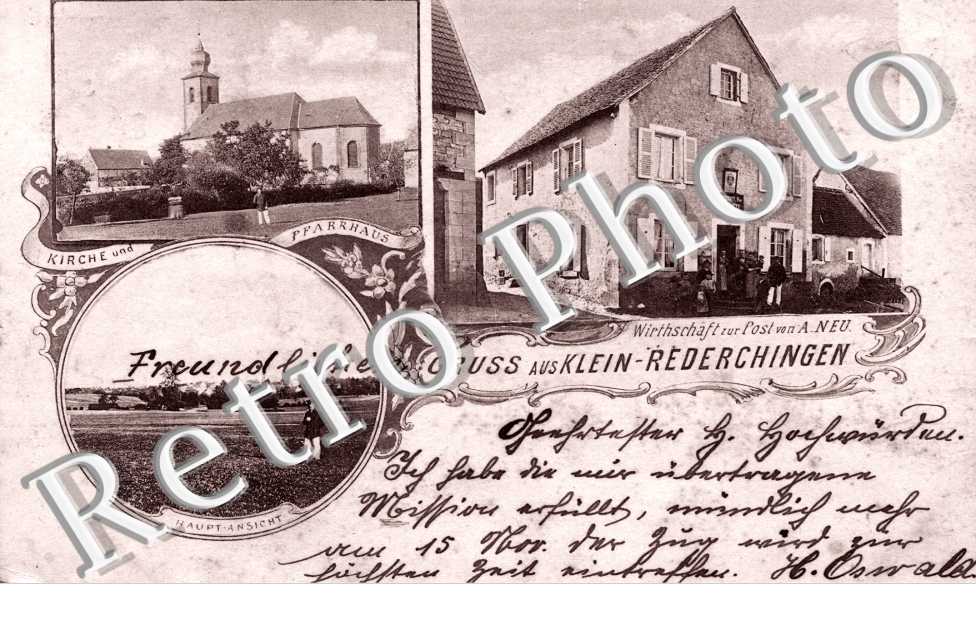 KIRCHE und
PFARRHAUS
Wirthschaft zur Post von A. NEU.
Freundlichen GRUSS AUS KLEIN-REDERCHINGEN
HAUPT-ANSICHT
Geehrtester H. Hochwürden.
Ich habe die mir übertragene
Mission erfüllt, mündlich mehr
am 15 Nov. der Zug wird zur
höchsten Zeit eintreffen. H. Oswald
Retro Photo